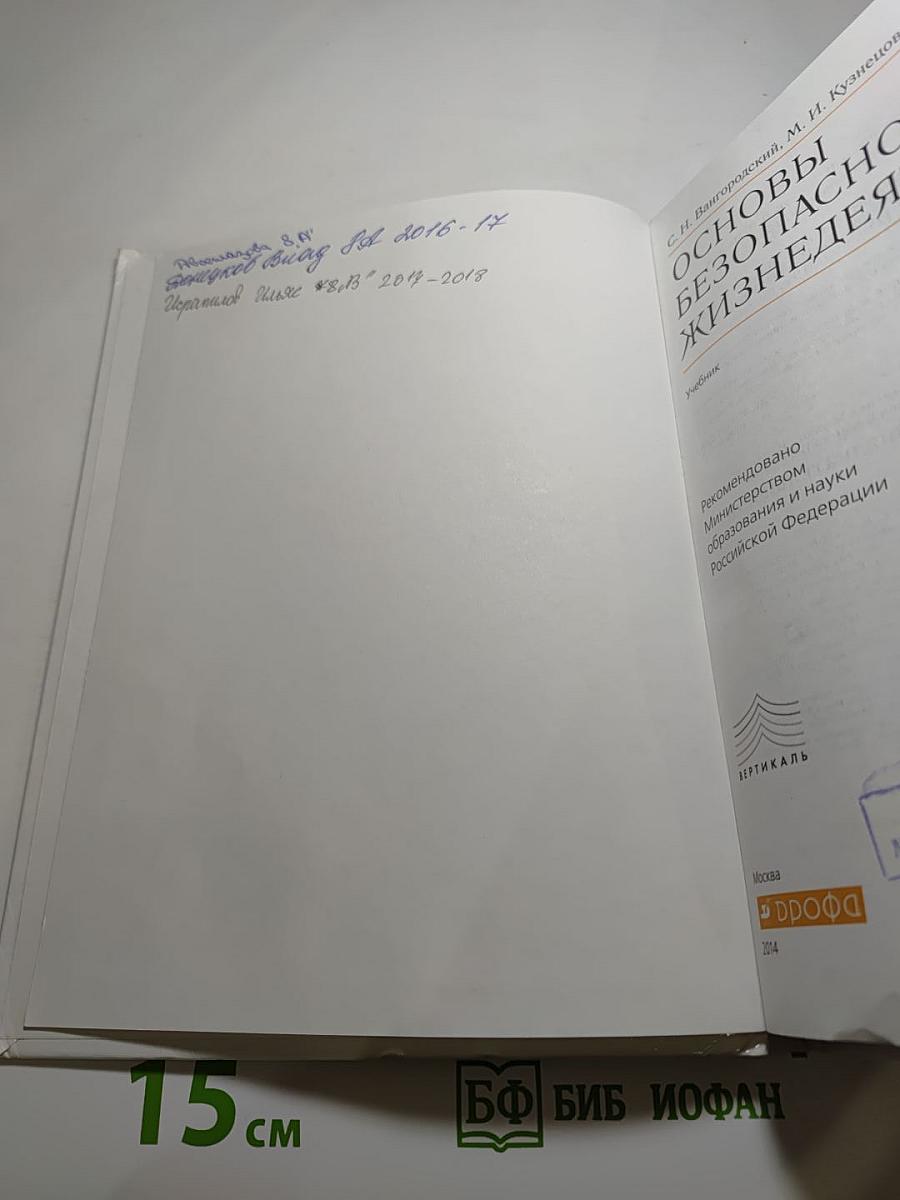 8 „А"
Влад 8А 2016-17
Исрапилов Ильяс 8„В" 2017-2018
С. Н. Вангородский, М. И. Кузнецов
ОСНОВЫ
БЕЗОПАСНО
ЖИЗНЕДЕЯ
Учебник
Рекомендовано
Министерством
образования и науки
Российской Федерации
ВЕРТИКАЛЬ
Москва
дрофа
2014
15 см
БФ БИБ ИОФАН